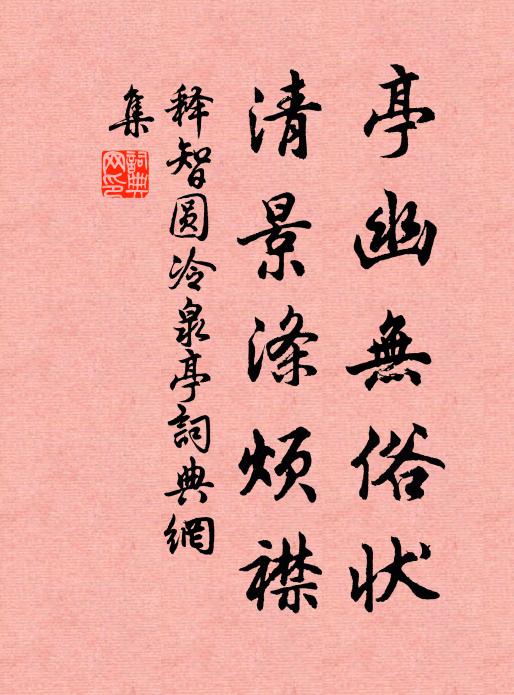 亭幽無俗状
清景涤烦襟
释智圆冷泉亭詞典網
集
詞典
网印